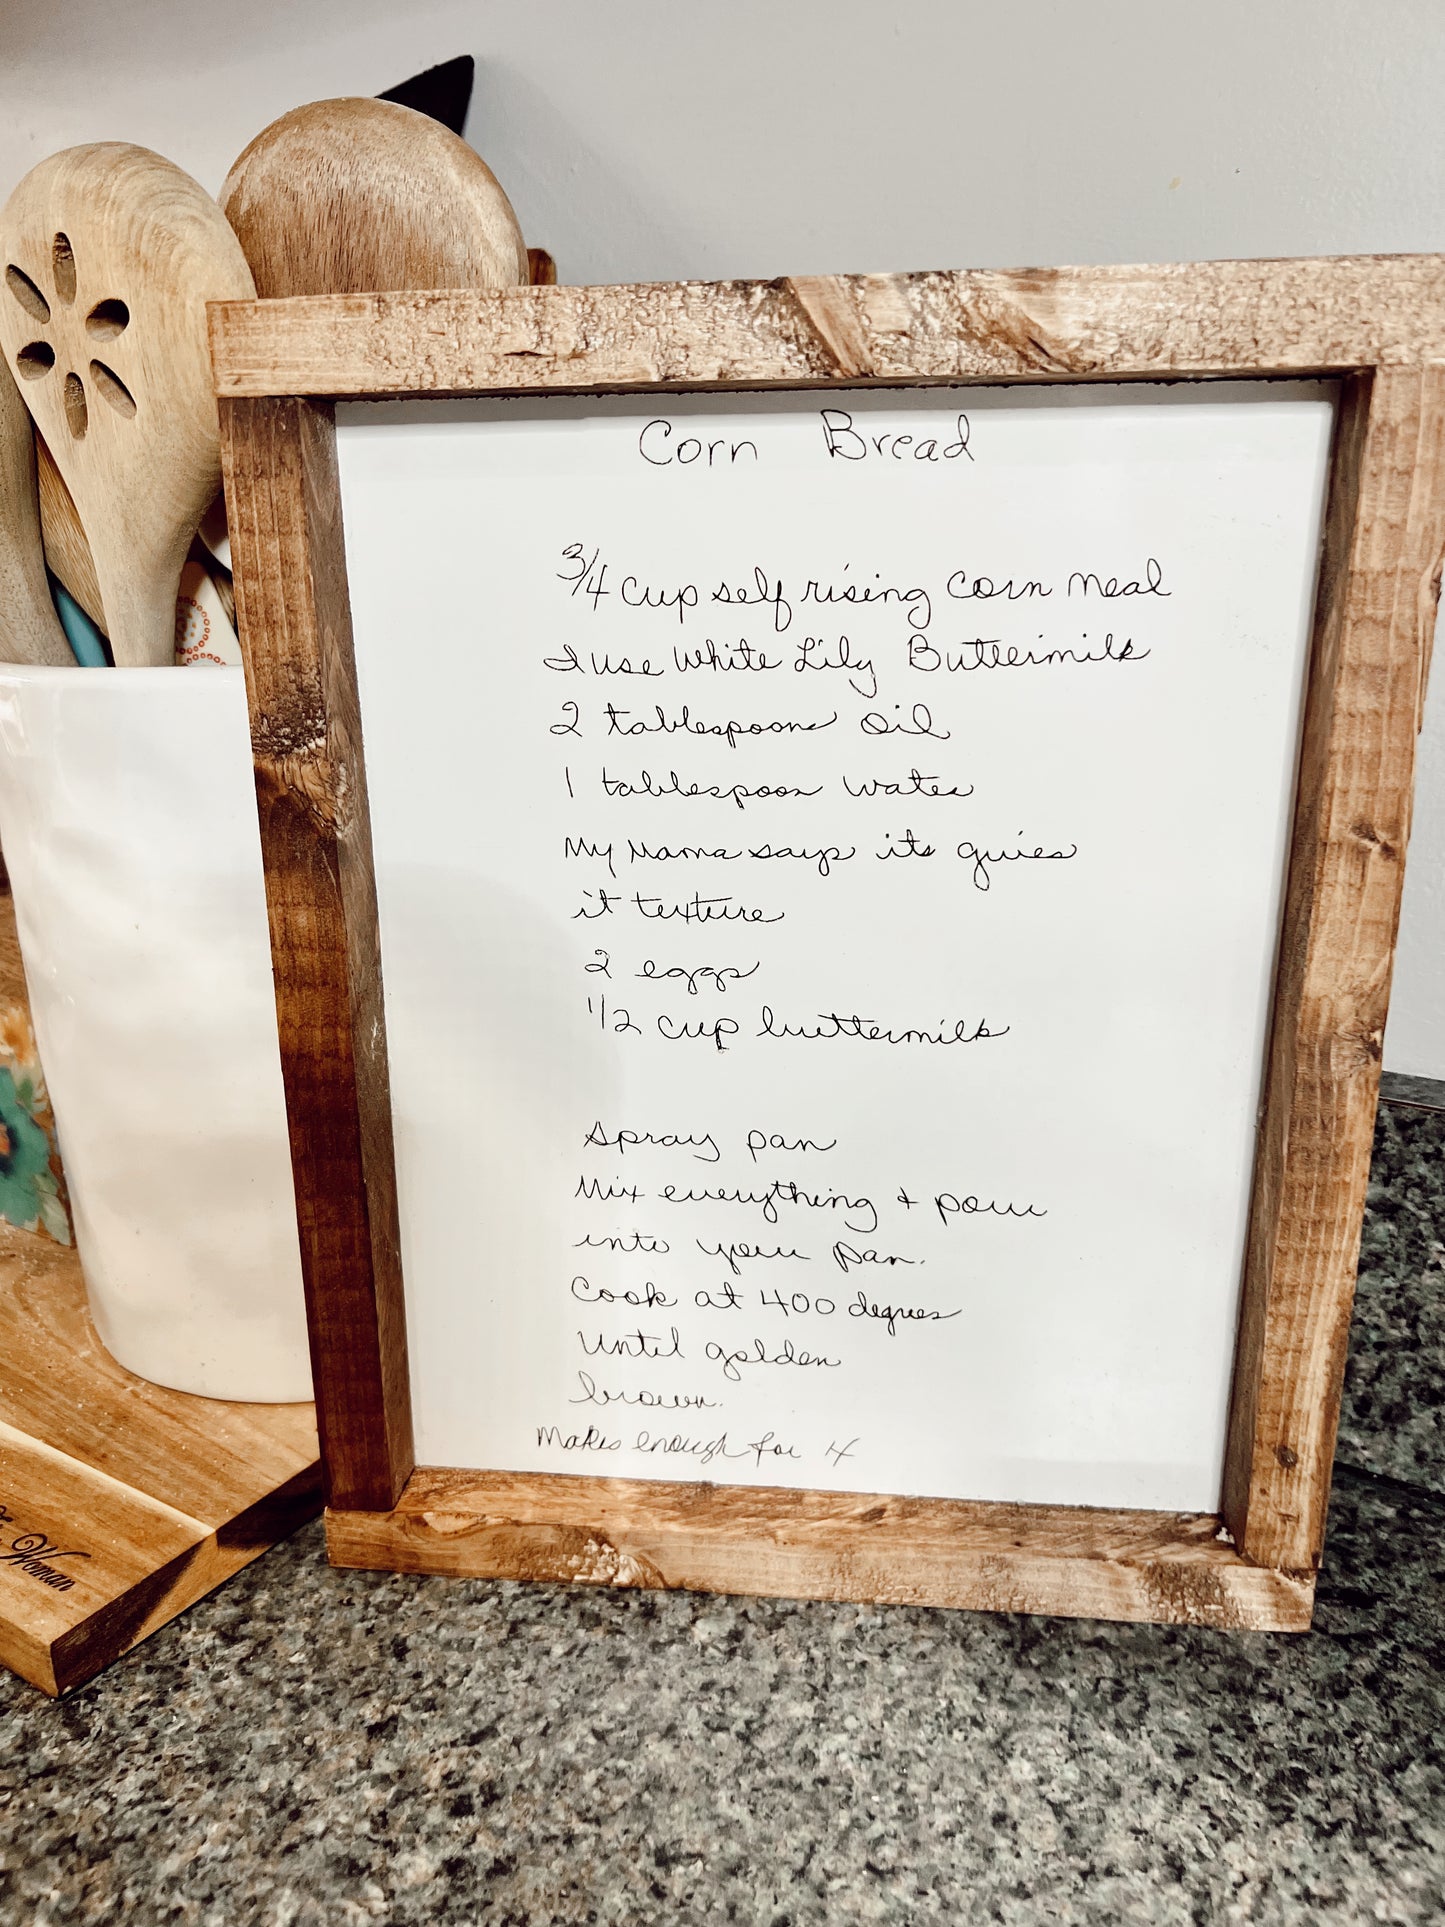 Corn Bread
3/4 cup self rising corn meal
I use White Lily Buttermilk
2 tablespoons oil
1 tablespoon water
My Mama says its gives
it texture
2 eggs
1/2 cup buttermilk
Spray pan
Mix everything & pour
into your pan.
Cook at 400 degrees
Until golden
brown.
Makes enough for 4
Woman